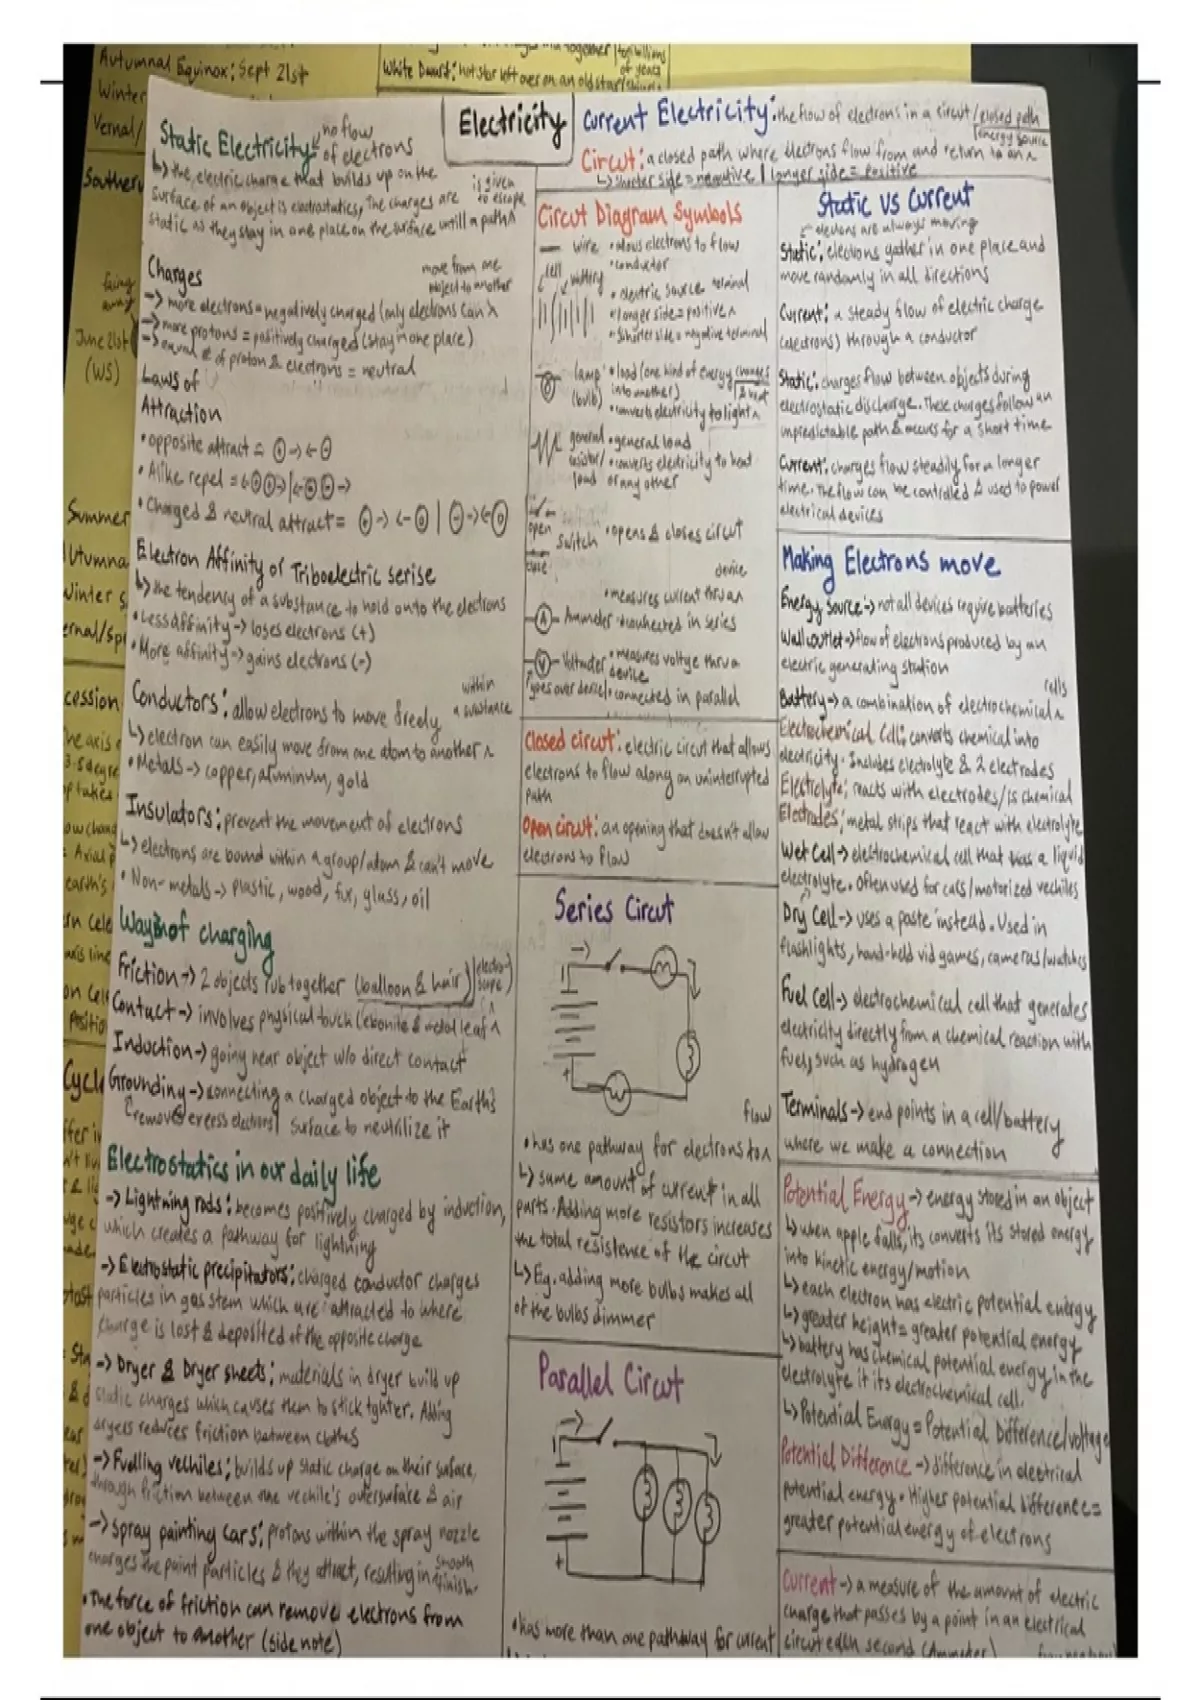 Autumnal Equinox: Sept 21st
Winter
Vernal/
Southern
facing
away
June 21st
(WS)
Summer
Autumna
Winter s
ernal/spr
cession
the axis
Cycle
White Dwarf: hot star left over on an old star
of years
Electricity
Static Electricity: no flow
of electrons
↳ the electric charge that builds up on the
surface of an object is electrostatics, The charges are
static as they stay in one place on the surface untill a path^
is given
to escape
Charges
move from one
object to another
-> more electrons = negatively charged (only electrons can ^
-> more protons = positively charged (stay in one place)
-> equal # of proton & electrons = neutral
Laws of
Attraction
• opposite attract = ⊕-> <-⊖
• Alike repel = <-⊕⊕-> | <-⊖⊖->
• Charged & neutral attract = ⊕-> <-⓪ | ⊖-> <-⓪
Electron Affinity or Triboelectric serise
↳ the tendency of a substance to hold onto the electrons
• Less affinity -> loses electrons (+)
• More affinity -> gains electrons (-)
Conductors: allow electrons to move freely
within
a substance
↳ electron can easily move from one atom to another ^
• Metals -> copper, aluminum, gold
Insulators: prevent the movement of electrons
↳ electrons are bound within a group/atom & can't move
• Non-metals -> plastic, wood, fur, glass, oil
Ways of charging
Friction -> 2 objects rub together (balloon & hair)
electro-
scope)
Contact -> involves physical touch (ebonite & metal leaf ^
Induction -> going near object w/o direct contact
Grounding -> connecting a charged object to the Earth's
removes excess electrons
surface to neutrilize it
Electrostatics in our daily life
-> Lightning rods: becomes positively charged by induction,
which creates a pathway for lightning
-> Electrostatic precipitators: charged conductor charges
particles in gas stem which are attracted to where
charge is lost & deposited of the opposite charge
-> Dryer & Dryer sheets: materials in dryer build up
static charges which causes them to stick tghter. Adding
dryers reduces friction between clothes
-> Fuelling vechiles: builds up static charge on their surface,
through friction between the vechile's outersurface & air
-> Spray painting cars: protons within the spray nozzle
charges the paint particles & they attract, resulting in smooth
finish.
• The force of friction can remove electrons from
one object to another (side note)
Current Electricity: the flow of electrons in a circut/closed path
energy source
Circut: a closed path where electrons flow from and return to an ^
↳ Shorter side = negative | longer side = positive
Circut Diagram Symbols
wire • allows electrons to flow
• conductor
cell battery • electric source terminal
• longer side = positive ^
• Shorter side = negative terminal
lamp (bulb) • load (one kind of energy changes
into another)
• converts electricity to light ^
& heat
general resistor/load • general load
• converts electricity to heat
or any other
open
close
switch • opens & closes circut
device
• measures current thru an
A Ammeter • connected in series
V Voltmeter • measures voltge thru a
device
goes over device • connected in parallel
Closed circut: electric circut that allows
electrons to flow along an uninterrupted
path
Open circut: an opening that doesn't allow
electrons to flow
Series Circut
flow
• has one pathway for electrons to ^
↳ same amount of current in all
parts. Adding more resistors increases
the total resistence of the circut
↳ Eg. adding more bulbs makes all
of the bulbs dimmer
Parallel Circut
• has more than one pathway for current
Static vs Current
electrons are always moving
Static: electrons gather in one place and
move randomly in all directions
Current: a steady flow of electric charge
(electrons) through a conductor
Static: charges flow between objects during
electrostatic discharge. These charges follow an
unpredictable path & occurs for a short time
Current: charges flow steadily for a longer
time. The flow can be controlled & used to power
electrical devices
Making Electrons move
Energy Source -> not all devices require batteries
Wall outlet -> flow of electrons produced by an
electric generating station
cells
Battery -> a combination of electrochemical ^
Electrochemical Cell: converts chemical into
electricity. Includes electrolyte & 2 electrodes
Electrolyte: reacts with electrodes/is chemical
Electrodes: metal strips that react with electrolyte
Wet Cell -> electrochemical cell that has a liquid
electrolyte. Often used for cars/motorized vechiles
Dry Cell -> uses a paste instead. Used in
flashlights, hand-held vid games, cameras/watches
Fuel Cell -> electrochemical cell that generates
electricity directly from a chemical reaction with
fuel, such as hydrogen
Terminals -> end points in a cell/battery
where we make a connection
Potential Energy -> energy stored in an object
↳ when apple falls, its converts its stored energy
into kinetic energy/motion
↳ each electron has electric potential energy
↳ greater height = greater potential energy
↳ battery has chemical potential energy in the
electrolyte it its electrochemical cell.
↳ Potential Energy = Potential Difference/voltage
Potential Difference -> difference in electrical
potential energy. Higher potential difference =
greater potential energy of electrons
Current -> a measure of the amount of electric
charge that passes by a point in an electrical
circut each second (Ammeter)